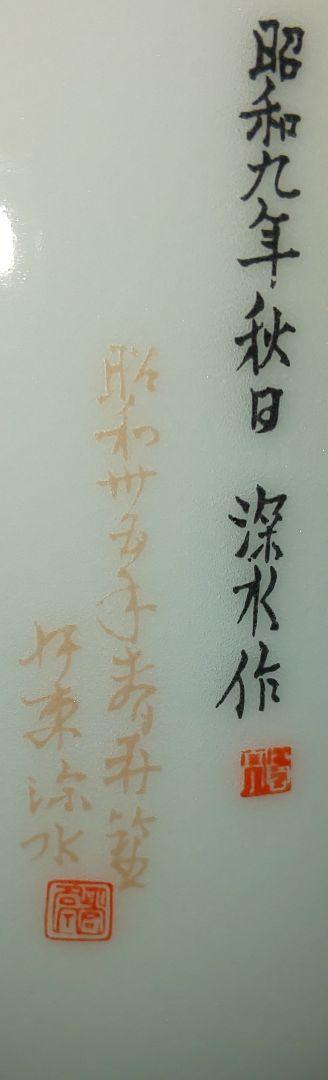 昭和九年秋日 深水作
昭和卅五年春再鑑
伊東深水